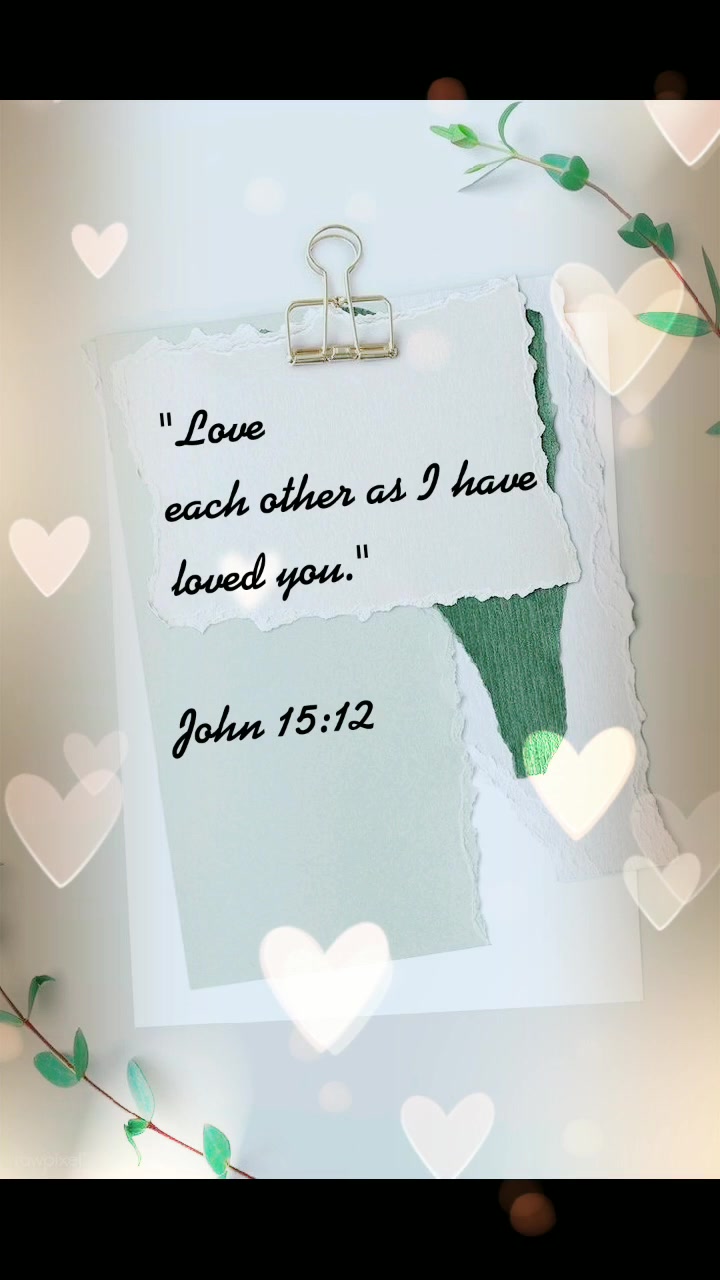 "Love
each other as I have
loved you."
John 15:12